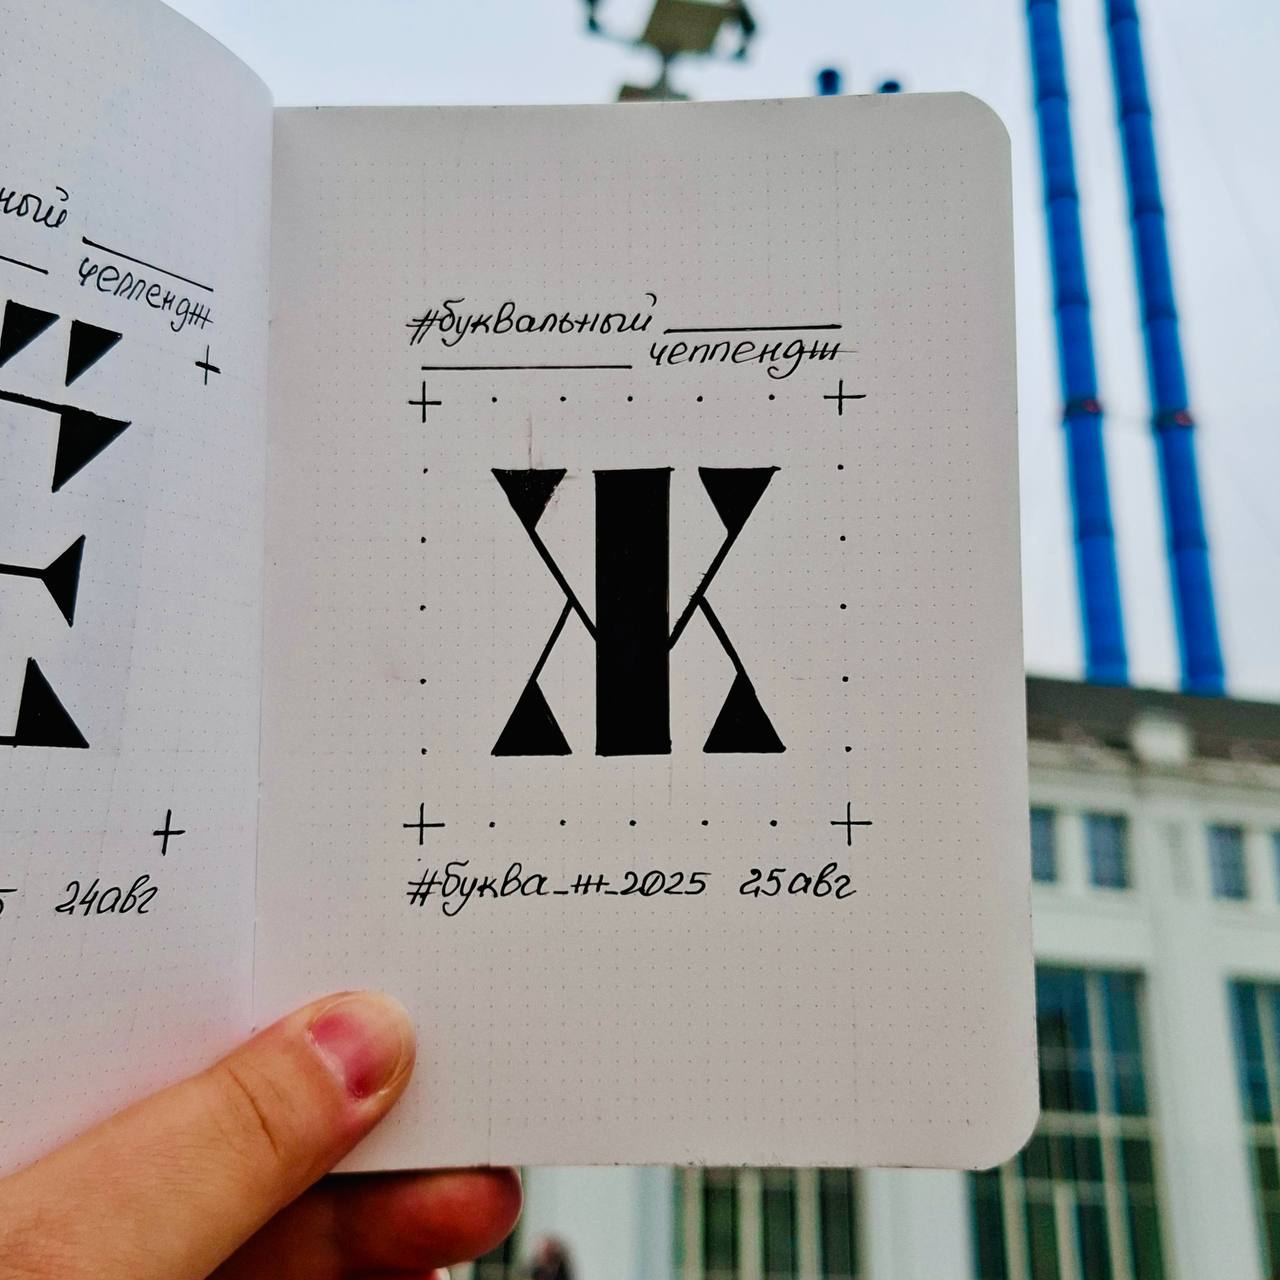 ный
черрендж
24авг
#буквальный
челлендж
Ж
#буква_ж_2025 25авг